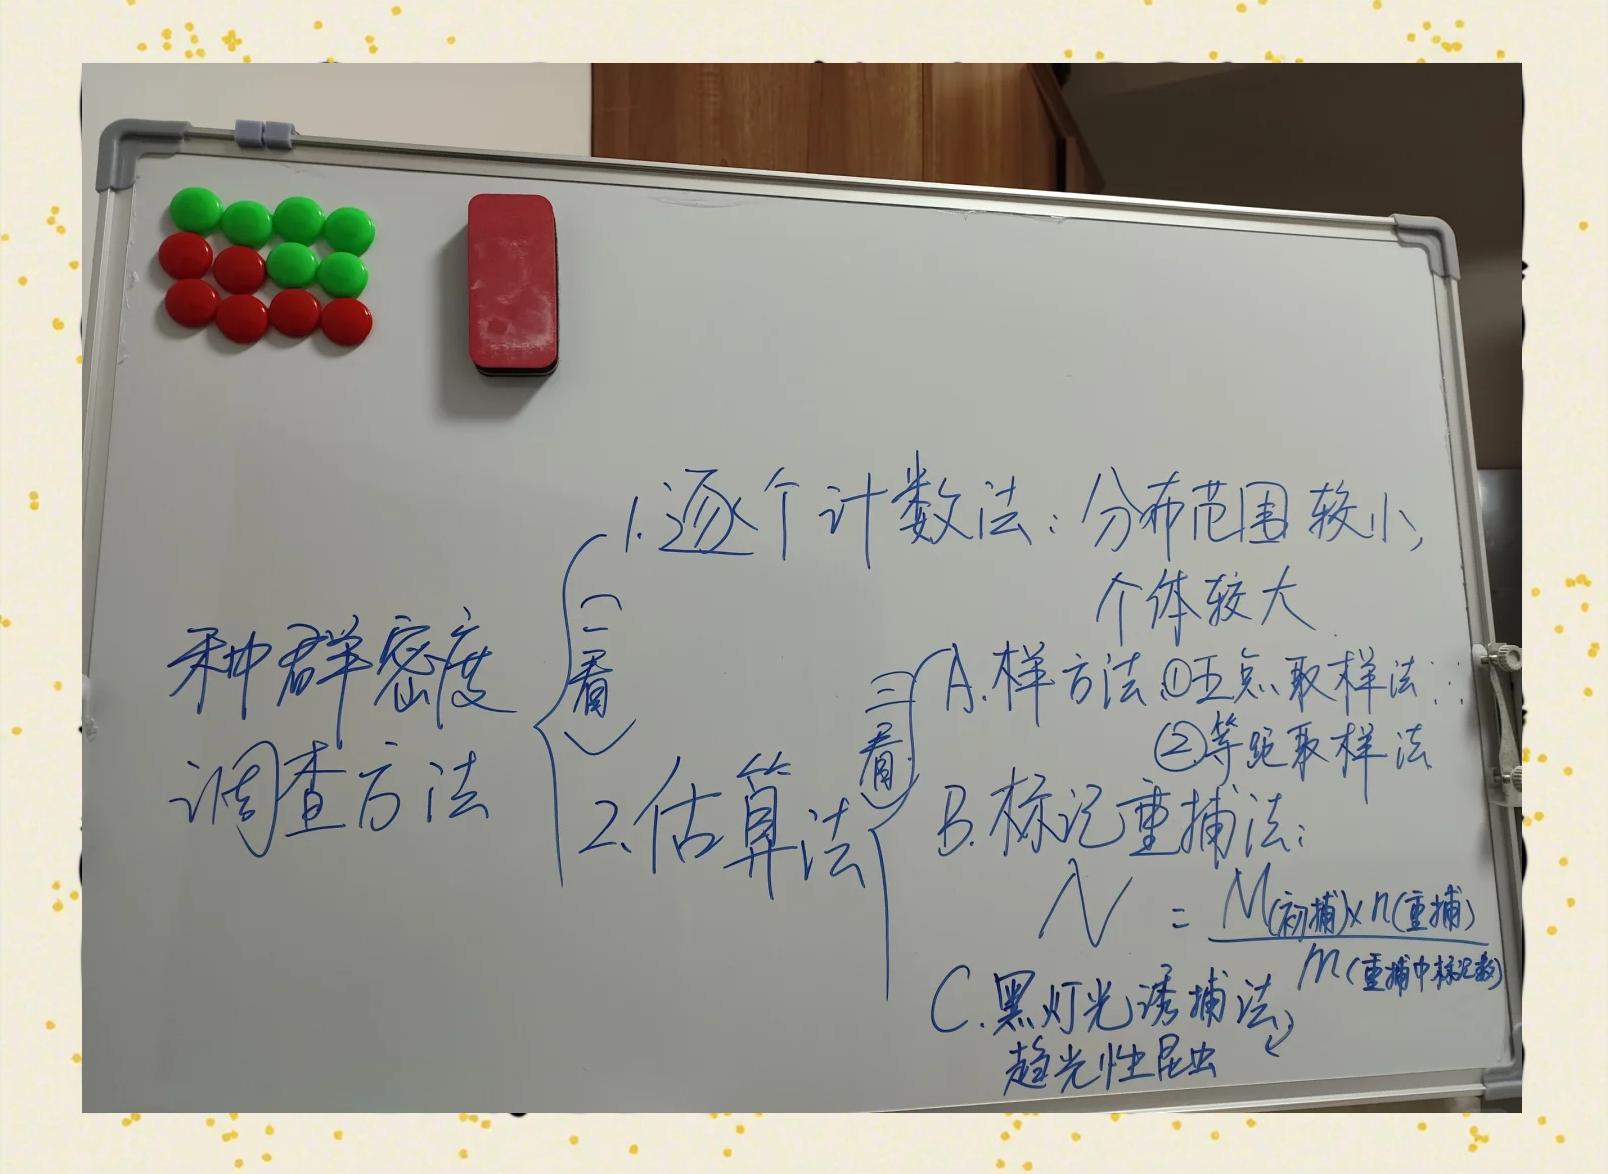 种群密度
调查方法
(二看)
1.逐个计数法：分布范围较小，
个体较大
2.估算法
(三看)
A.样方法 ①五点取样法
②等距取样法
B.标记重捕法：
N = M(初捕)×n(重捕)
m(重捕中标记数)
C.黑灯光诱捕法，
趋光性昆虫